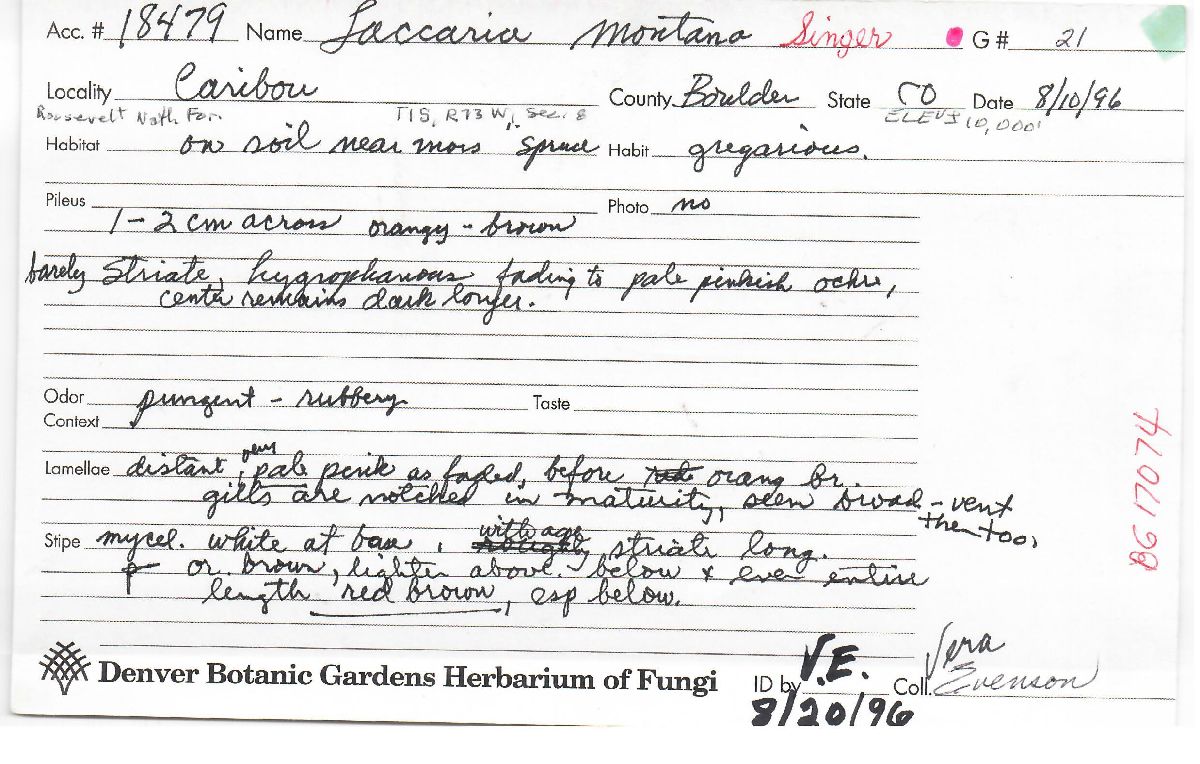 Acc. # 18479 Name Laccaria montana Singer G# 21
Locality Caribou County Boulder State CO Date 8/10/96
Roosevelt Nat'l For. T1S, R73W, Sec. 8 ELEV± 10,000'
Habitat on soil near moss spruce Habit gregarious.
Pileus Photo no
1-2 cm across orangy-brown
barely striate, hygrophanous fading to pale pinkish ochre,
center remains dark longer.
Odor pungent - rubbery Taste
Context
very
Lamellae distant, pale pink as faded, before red orang br.
gills are notched in maturity, seem broad-vent
then too,
with age
Stipe mycel. white at base, striate long.
or. brown, lighter above. below & even entire
length red brown, esp below.
Denver Botanic Gardens Herbarium of Fungi
ID by V.E. Coll. Vera Evenson
8/20/96
DBG 17074